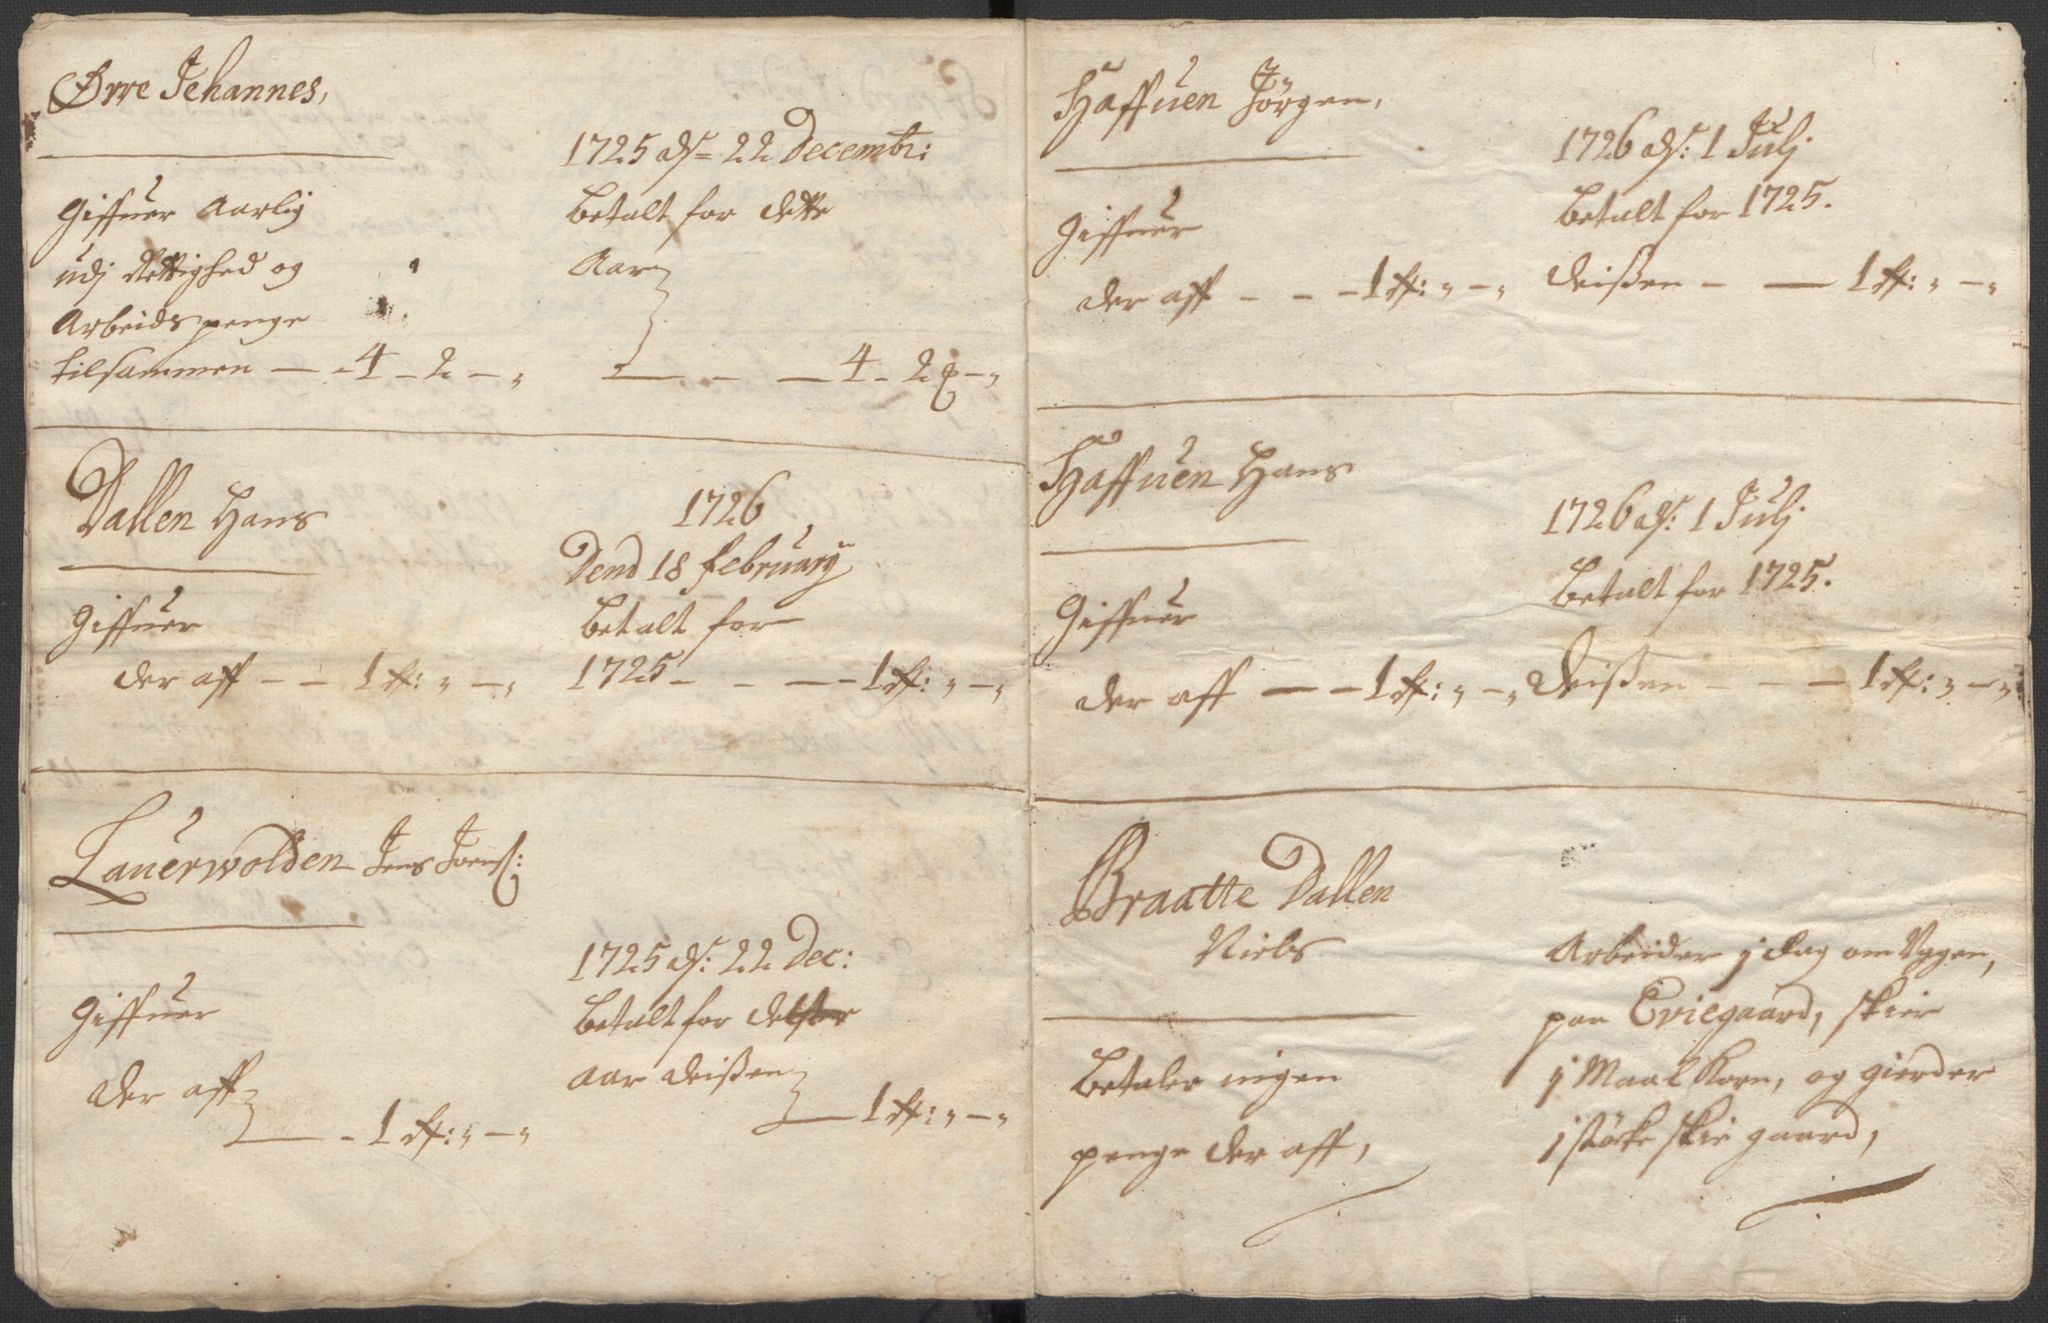 Ørre Jehannes,
giffuer Aarlig
udj Rettighed og
Arbeids penge
tilsammen — - 4 - 2 - "
1725 ds= 22 Decembr:
betalt for dette
Aar
— - — 4 - 2 - "
Dallen Hans
giffuer
der aff - - 1 rf: " - "
1726
Dend 18 februarij
betalt for
1725 - - — 1 rf: " - "
Lauerwolden Jens Joens:
giffuer
der aff
— - 1 rf: " - "
1725 ds: 22 Dec:
betalt for
aar deißen
— 1 rf: " - "
Haffuen Jörgen,
giffuer
der aff - - - 1 rf: " - "
1726 ds: 1 Julj
betalt for 1725.
deißen - — 1 rf: " - "
Haffuen Hans
giffuer
der aff — - 1 rf: " - "
1726 ds: 1 Julj
betalt for 1725.
deißen - - - 1 rf: " - "
Braatte Dallen
Niels
betaler ingen
penge der aff,
Arbeider j dag om Ugen,
paa Evjegaard, skier
j Maal Korn, og gierder
j störke skie gaard,